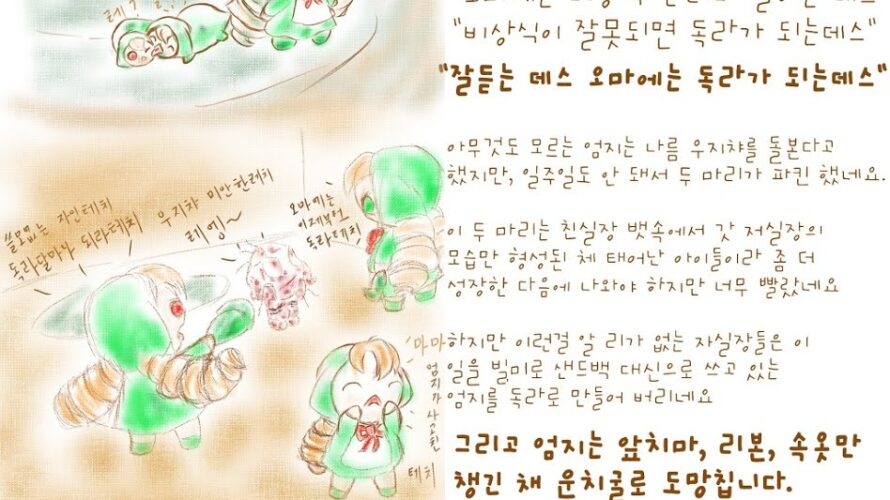 "비상식이 잘못되면 독라가 되는데스"
"잘듣는 데스 오마에는 독라가 되는데스"
아무것도 모르는 엄지는 나름 우지챠를 돌본다고
했지만, 일주일도 안 돼서 두 마리가 파킨 했네요.
이 두 마리는 친실장 뱃속에서 갓 저실장의
모습만 형성된 체 태어난 아이들이라 좀 더
성장한 다음에 나와야 하지만 너무 빨랐네요
쓸모없는 자인테치
독라달마나 되라테치
우지챠 미안한레치
레엥~
오마에는
이제부터
독라테치
마마
엄지가 사고친
테치
하지만 이런걸 알 리가 없는 자실장들은 이
일을 빌미로 샌드백 대신으로 쓰고 있는
엄지를 독라로 만들어 버리네요
그리고 엄지는 앞치마, 리본, 속옷만
챙긴 채 운치굴로 도망칩니다.